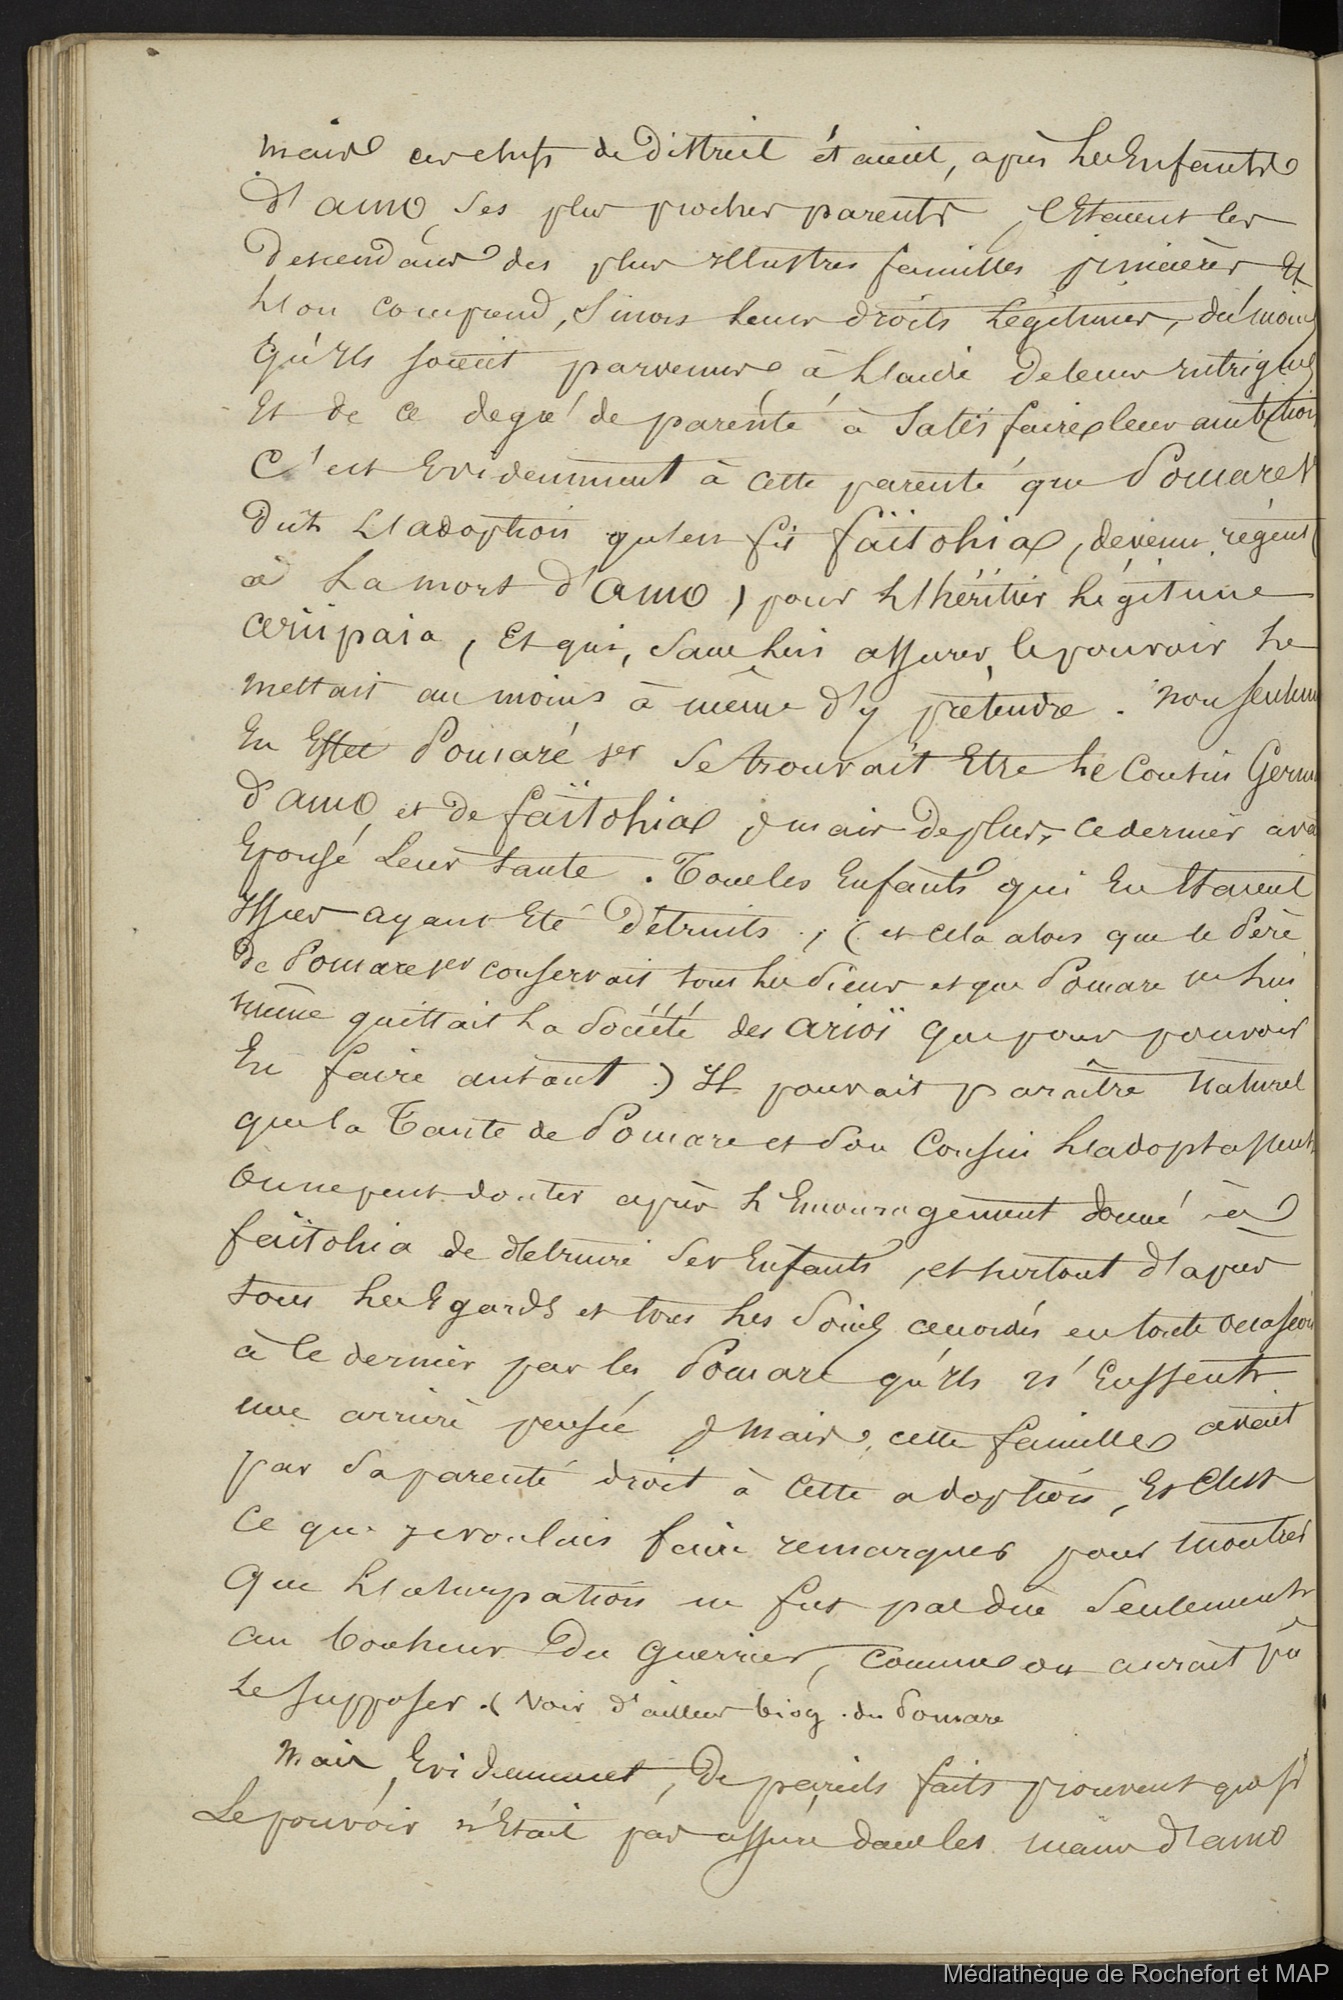 mais ces chefs de District étaient, après les Enfants
d'amo, ses plus proches parents, C'Etaient les
Descendans des plus Illustres familles princières Et
L'on comprend, Sinon leurs droits Légitimes, du moins
qu'Ils soient parvenus à L'aide de leurs intrigues
Et de ce degré de parenté à Satisfaire leur ambition
C'est Evidemment à cette parenté que Pomare 1er
Dut L'adoption qu'en fit faïtohia, (devenu régent
à La mort d'amo) pour L'héritier Légitime
Et qui, Sans lui assurer le pouvoir Le
mettait au moins à même d'y prétendre. Non seulem
En Effet Pomaré 1er Se trouvait Etre Le Cousin Germ
d'amo et de faïtohia, mais de plus, ce dernier ava
Epousé Leur tante. Tous les Enfants qui En Etaient
Issus ayant Eté Détruits; (et cela alors que le Père
De Pomare 1er conservait tous Les Siens et que Pomare ne Lui
même quittait La Société des arioï que pour pouvoir
En faire autant) Il pouvait paraître Naturel
que la Tante de Pomare et Son Cousin L'adoptassent
On ne peut douter après L'Encouragement donné à
faïtohia de détruire Ses Enfants, et surtout d'après
tous Les Egards et tous Les Soins accordés en toute occasion
à Ce dernier par les Pomare qu'Ils n'Eussent
une arrière pensée, Mais cette famille avait
par Sa parenté droit à Cette adoption, Et C'Est
Ce que je voulais faire remarquer pour montrer
Que L'usurpation ne fut pas due Seulement
au bonheur Du Guerrier, comme on aurait pu
Le Supposer. (Voir d'ailleurs biog. de Pomare
Mais Evidemment, De pareils faits prouvent que si
Le pouvoir n'Etait pas assuré dans les mains d'amo
Médiathèque de Rochefort et MAP